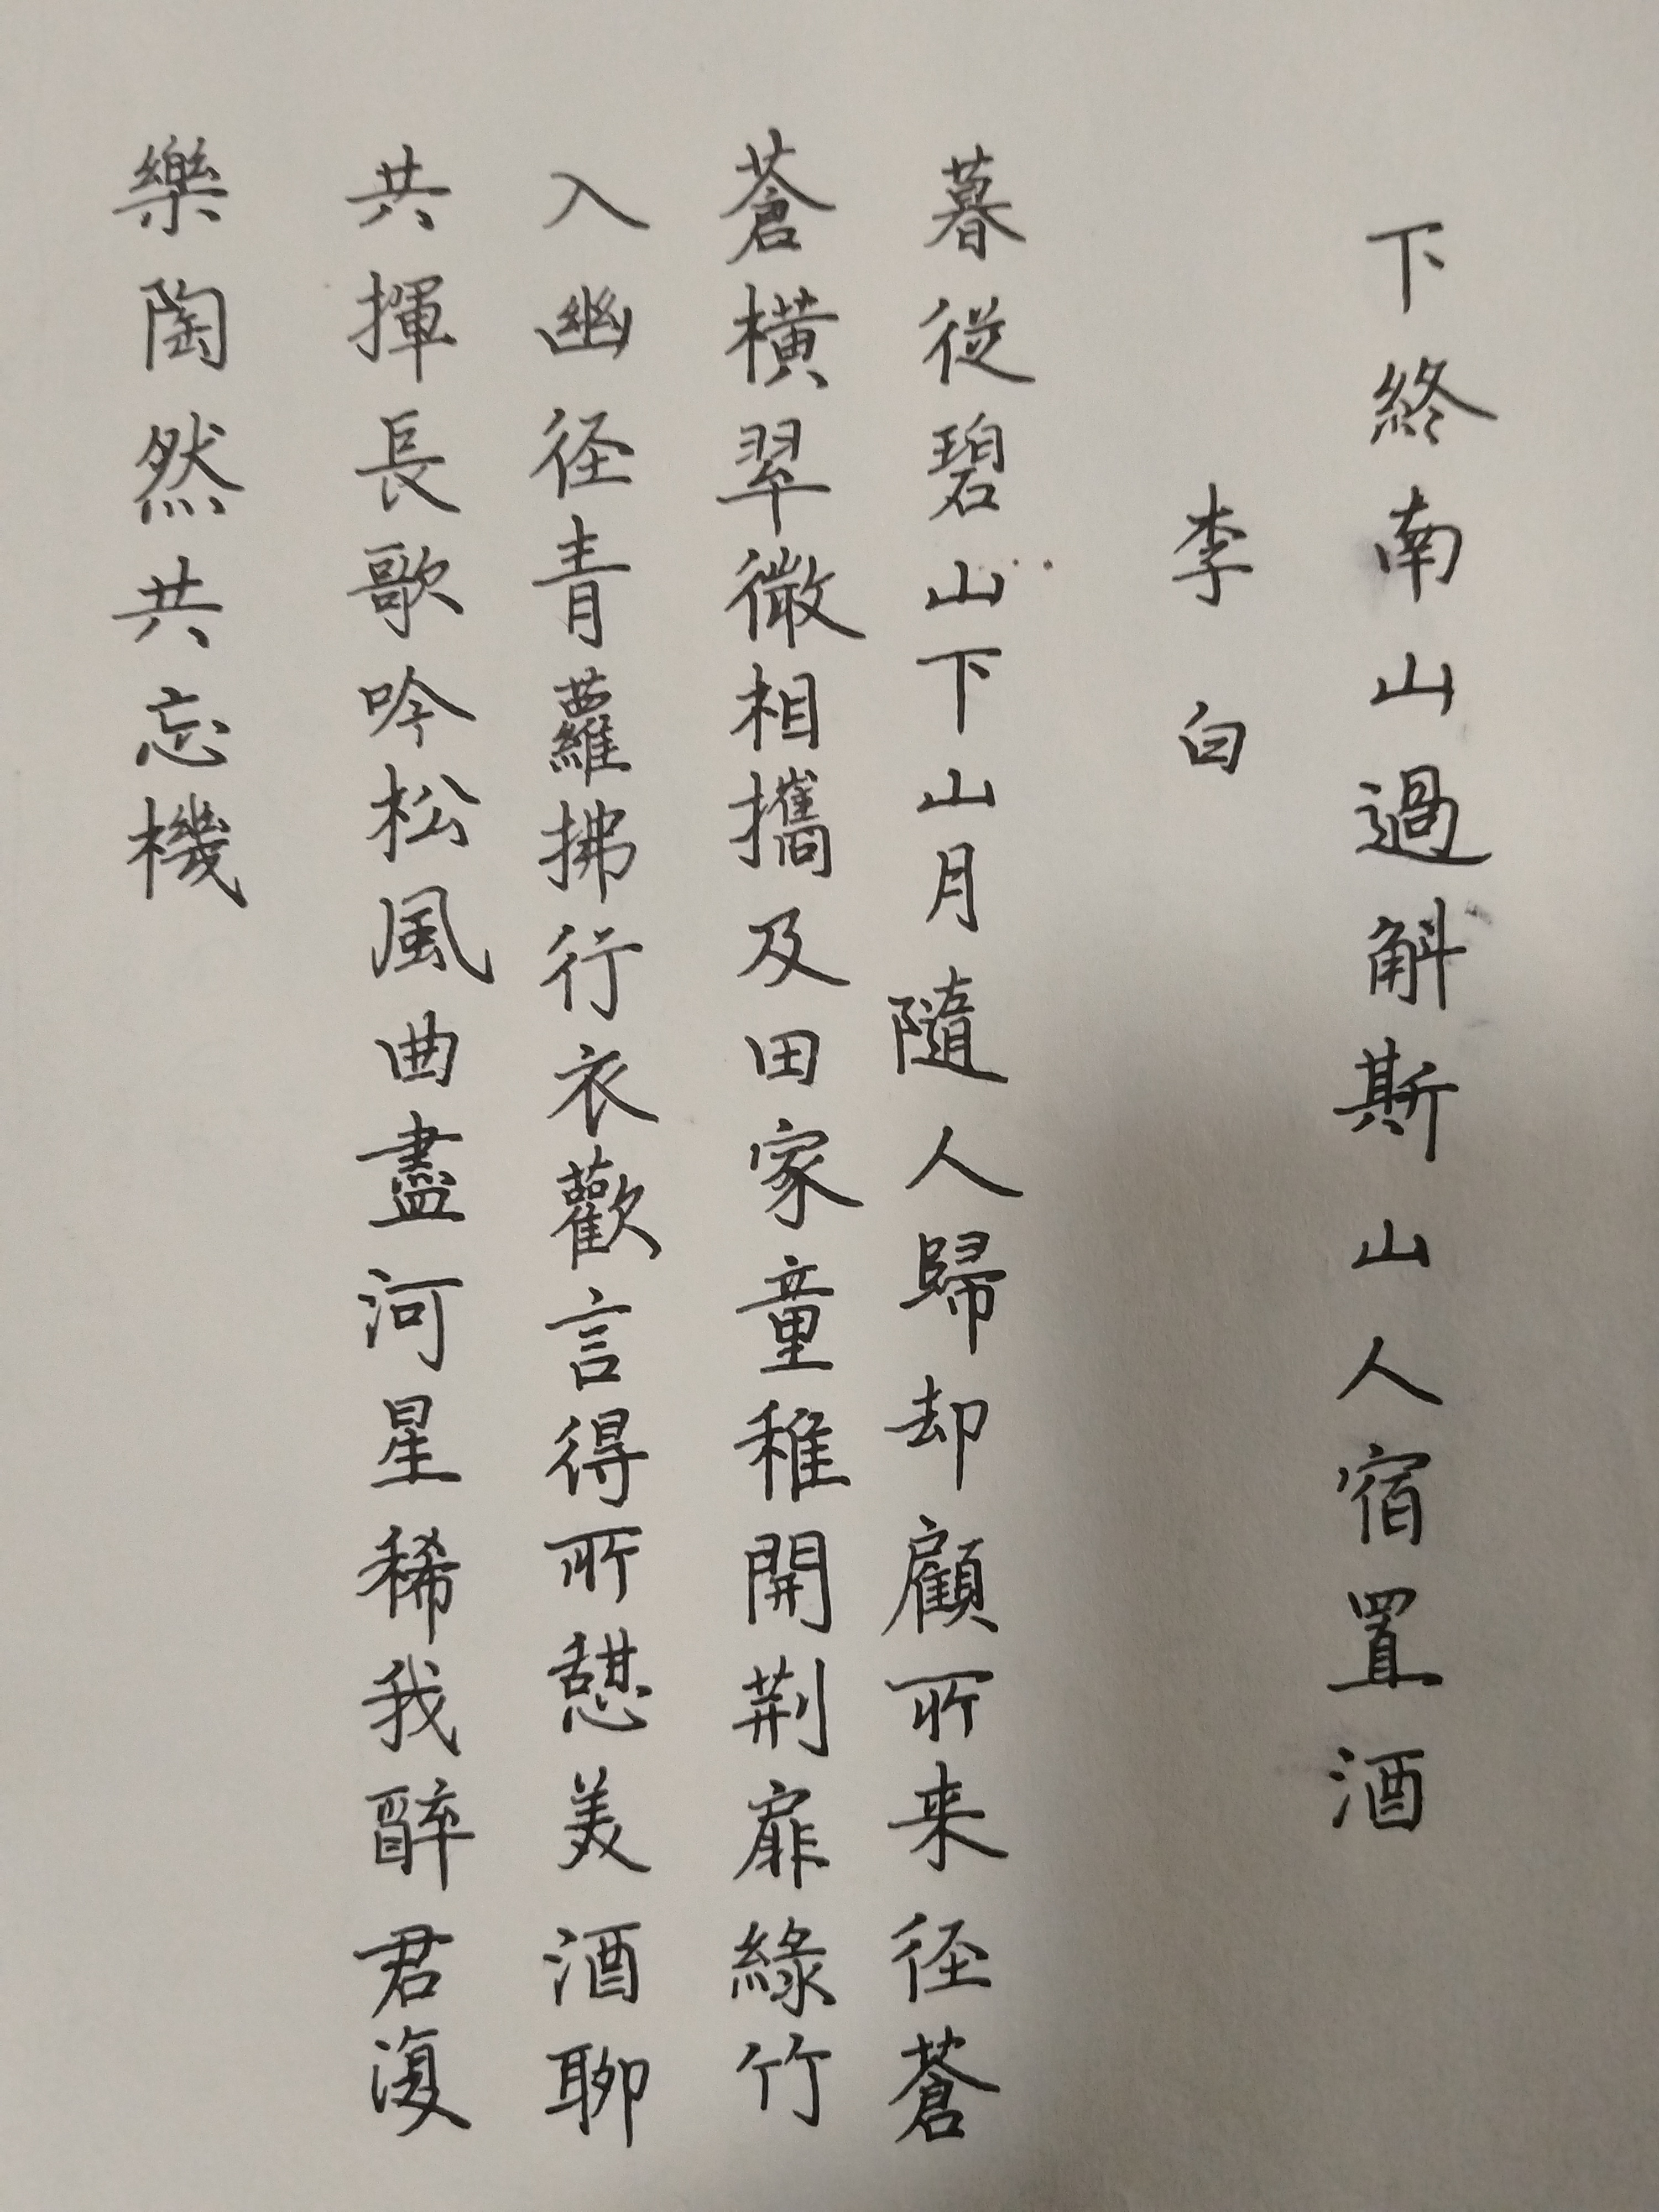 下終南山過斛斯山人宿置酒
李白
暮從碧山下山月隨人歸却顧所来径蒼
蒼橫翠微相攜及田家童稚開荆扉綠竹
入幽径青蘿拂行衣歡言得所憩美酒聊
共揮長歌吟松風曲盡河星稀我醉君復
樂陶然共忘機